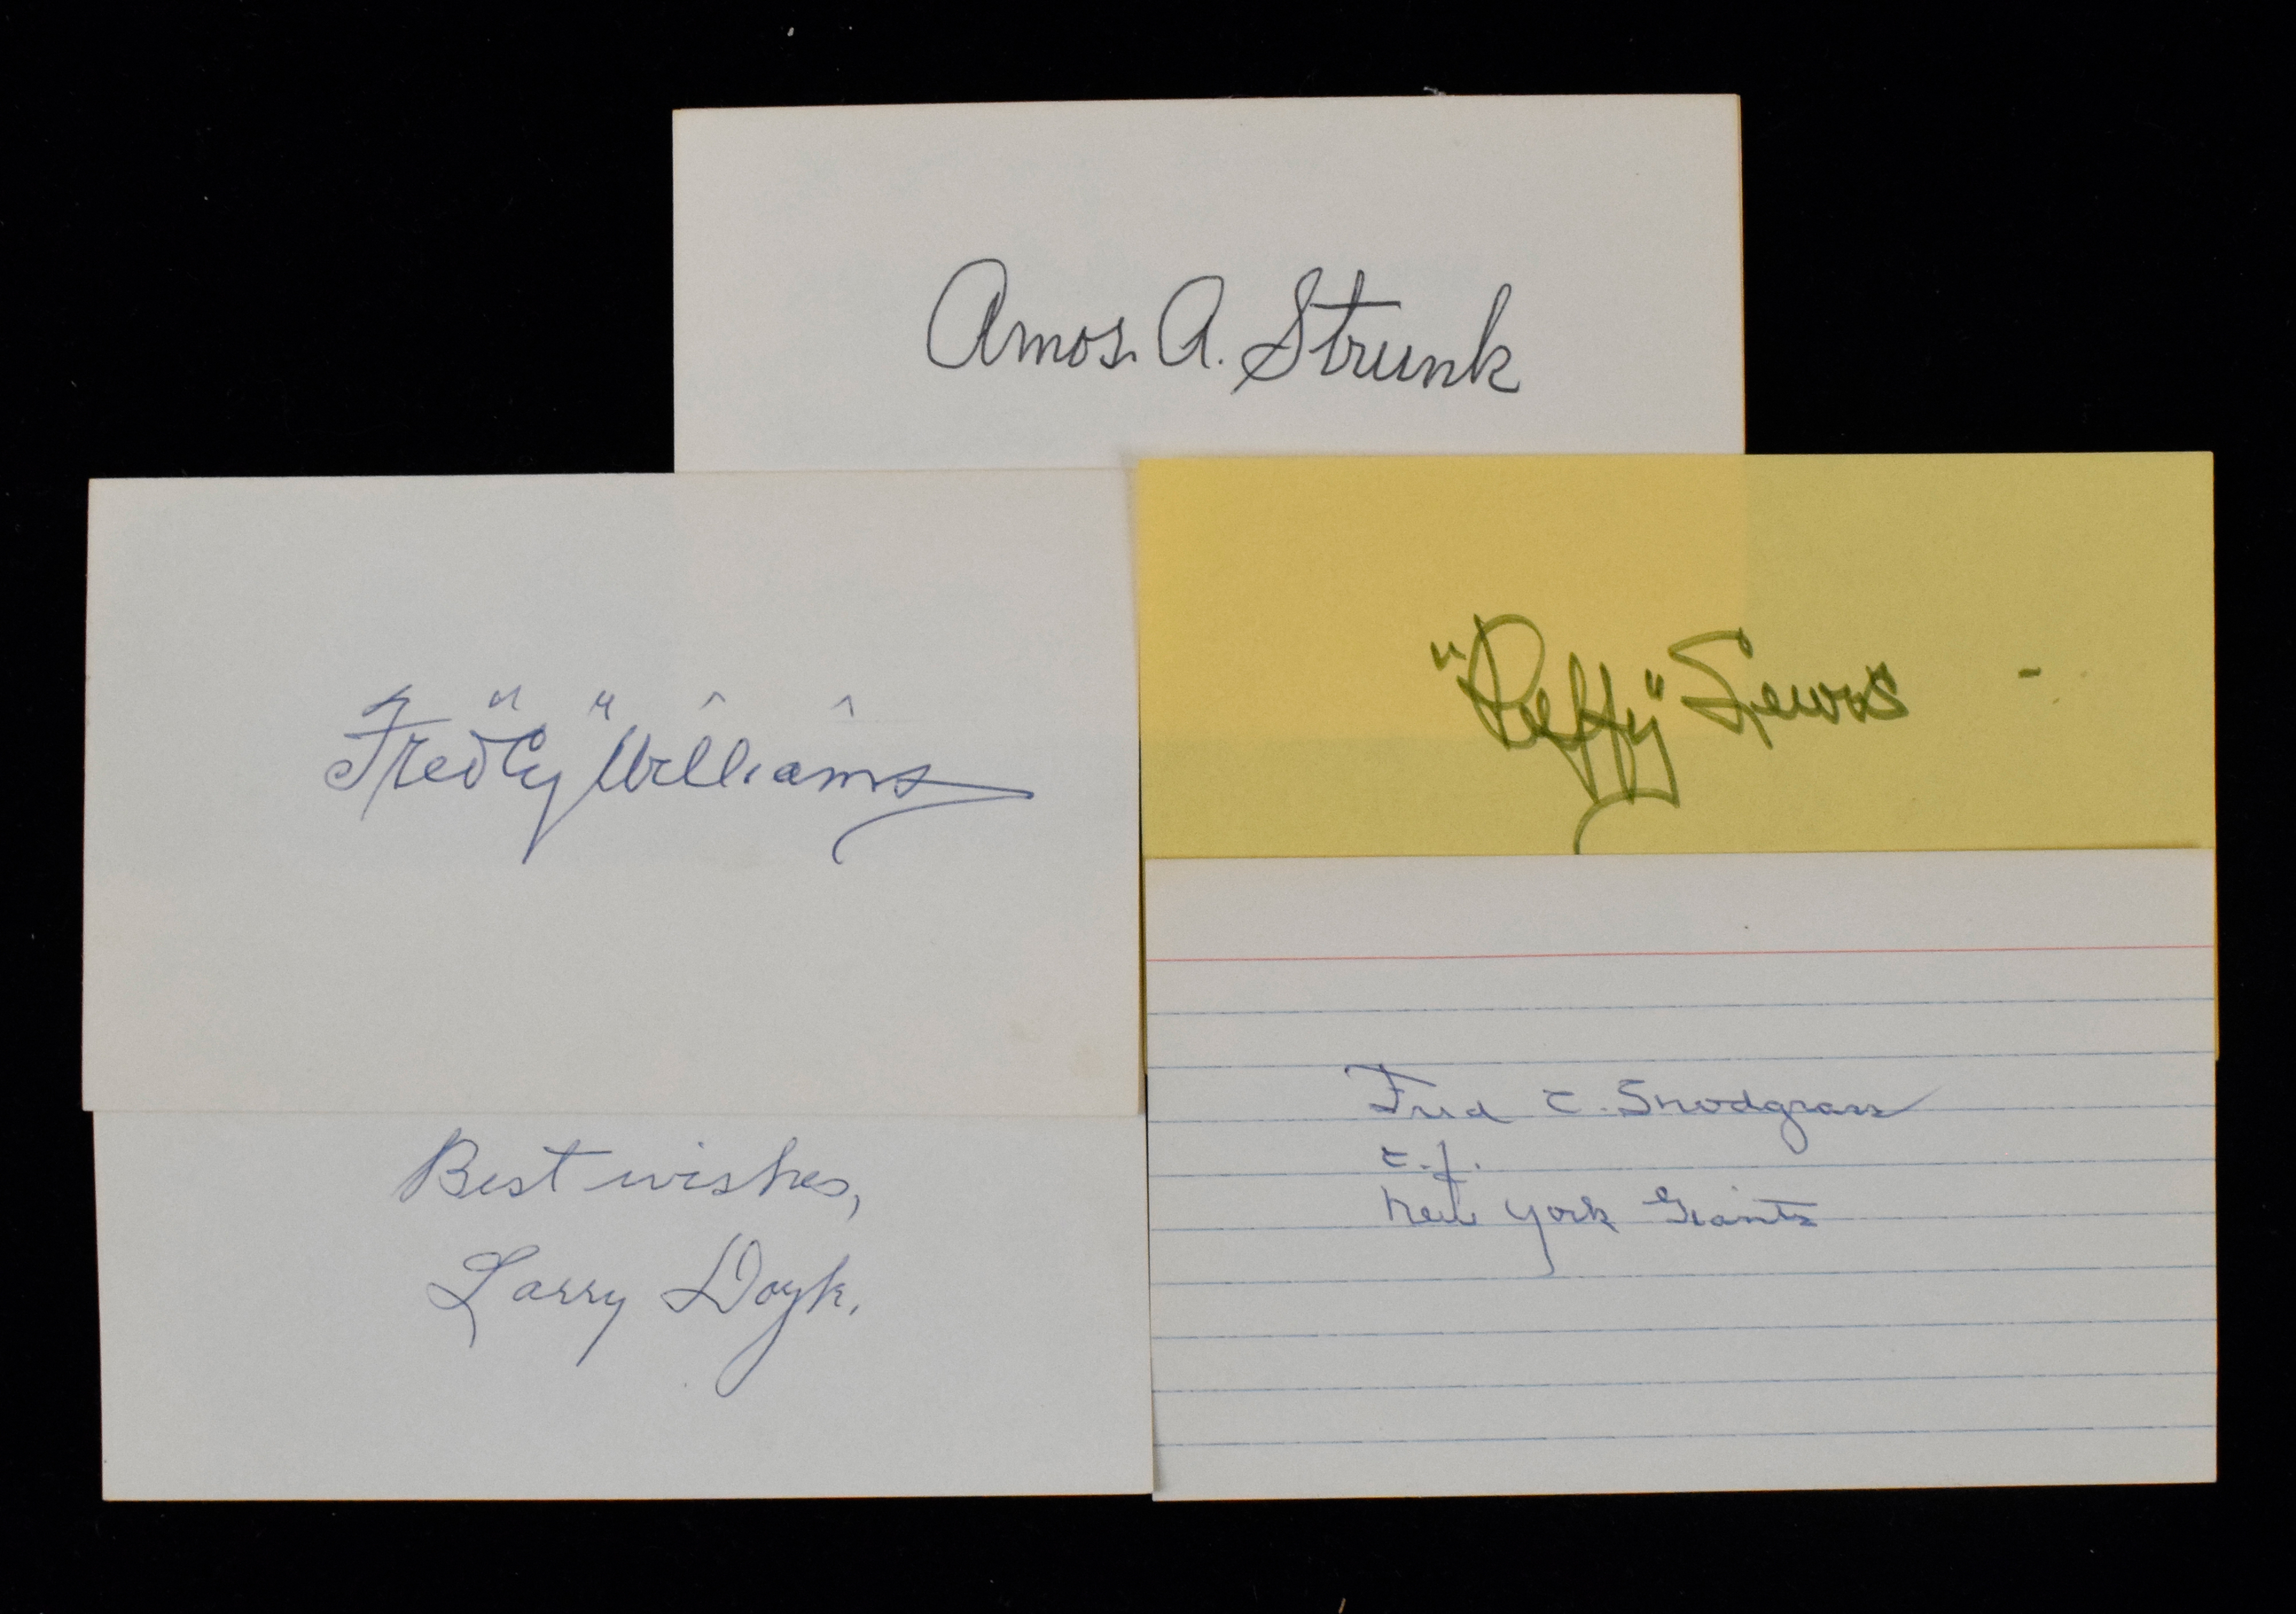 Amos. A. Strunk
Fred "Cy" Williams
"Duffy" Lewis
Best wishes,
Larry Doyle.
Fred C. Snodgrass
c.f.
New York Giants